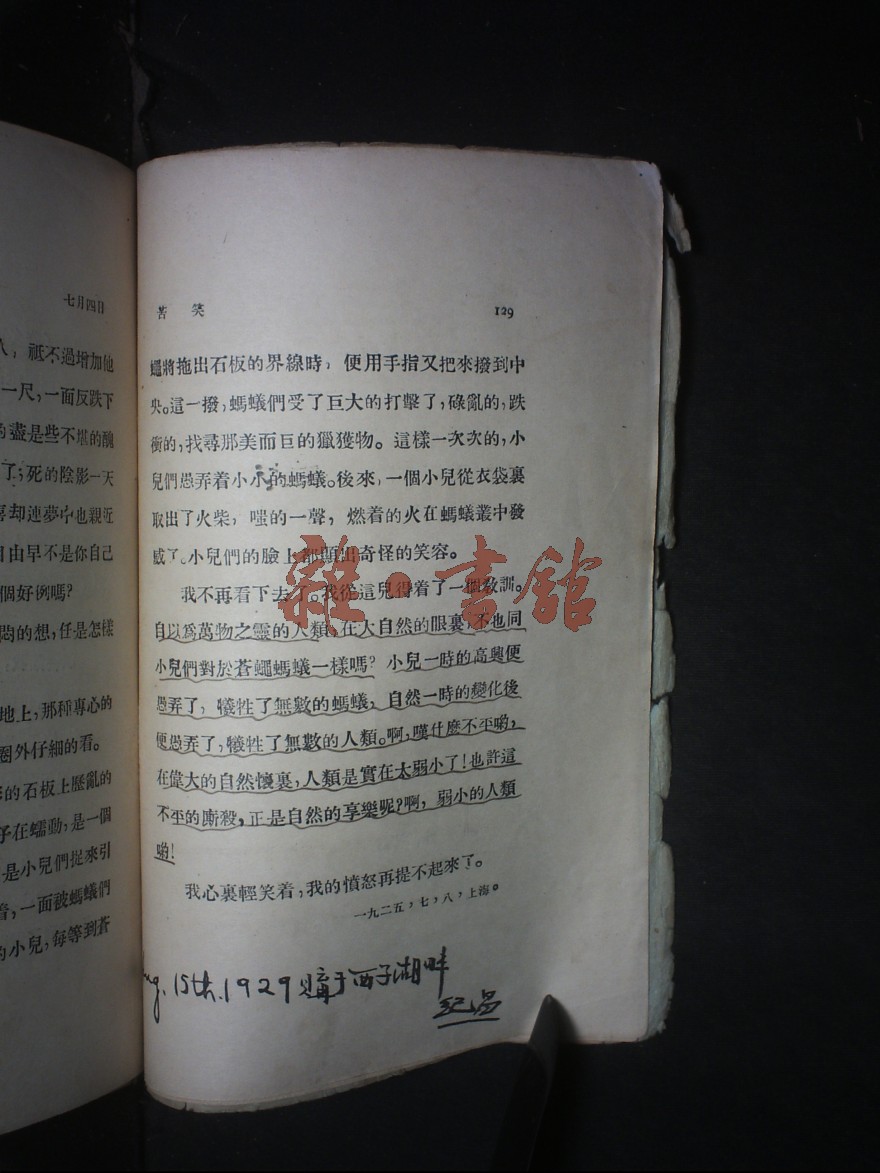 七月四日
祗不過增加他
一尺，一面反跌下
盡是些不堪的醜
了；死的陰影一天
却連夢中也親近
自由早不是你自己
個好例嗎？
悶的想，任是怎樣
地上，那種專心的
圈外仔細的看。
的石板上歷亂的
子在蠕動，是一個
是小兒們捉來引
一面被螞蟻們
的小兒，每等到蒼
苦笑 129
蠅將拖出石板的界線時，便用手指又把來撥到中
央。這一撥，螞蟻們受了巨大的打擊了，碌亂的，跌
衝的，找尋那美而巨的獵獲物。這樣一次次的，小
兒們愚弄着小小的螞蟻。後來，一個小兒從衣袋裏
取出了火柴，嗤的一聲，燃着的火在螞蟻叢中發
威了。小兒們的臉上都顯出奇怪的笑容。
我不再看下去了。我從這兒得着了一個教訓。
自以爲萬物之靈的人類，在大自然的眼裏，不也同
小兒們對於蒼蠅螞蟻一樣嗎？小兒一時的高興便
愚弄了，犧牲了無數的螞蟻，自然一時的變化後
便愚弄了，犧牲了無數的人類。啊，嘆什麽不平喲，
在偉大的自然懷裏，人類是實在太弱小了！也許這
不平的廝殺，正是自然的享樂呢？啊，弱小的人類
喲！
我心裏輕笑着，我的憤怒再提不起來了。
一九二五，七，八，上海。
15th. 1929 購于西子湖畔
雜·書館